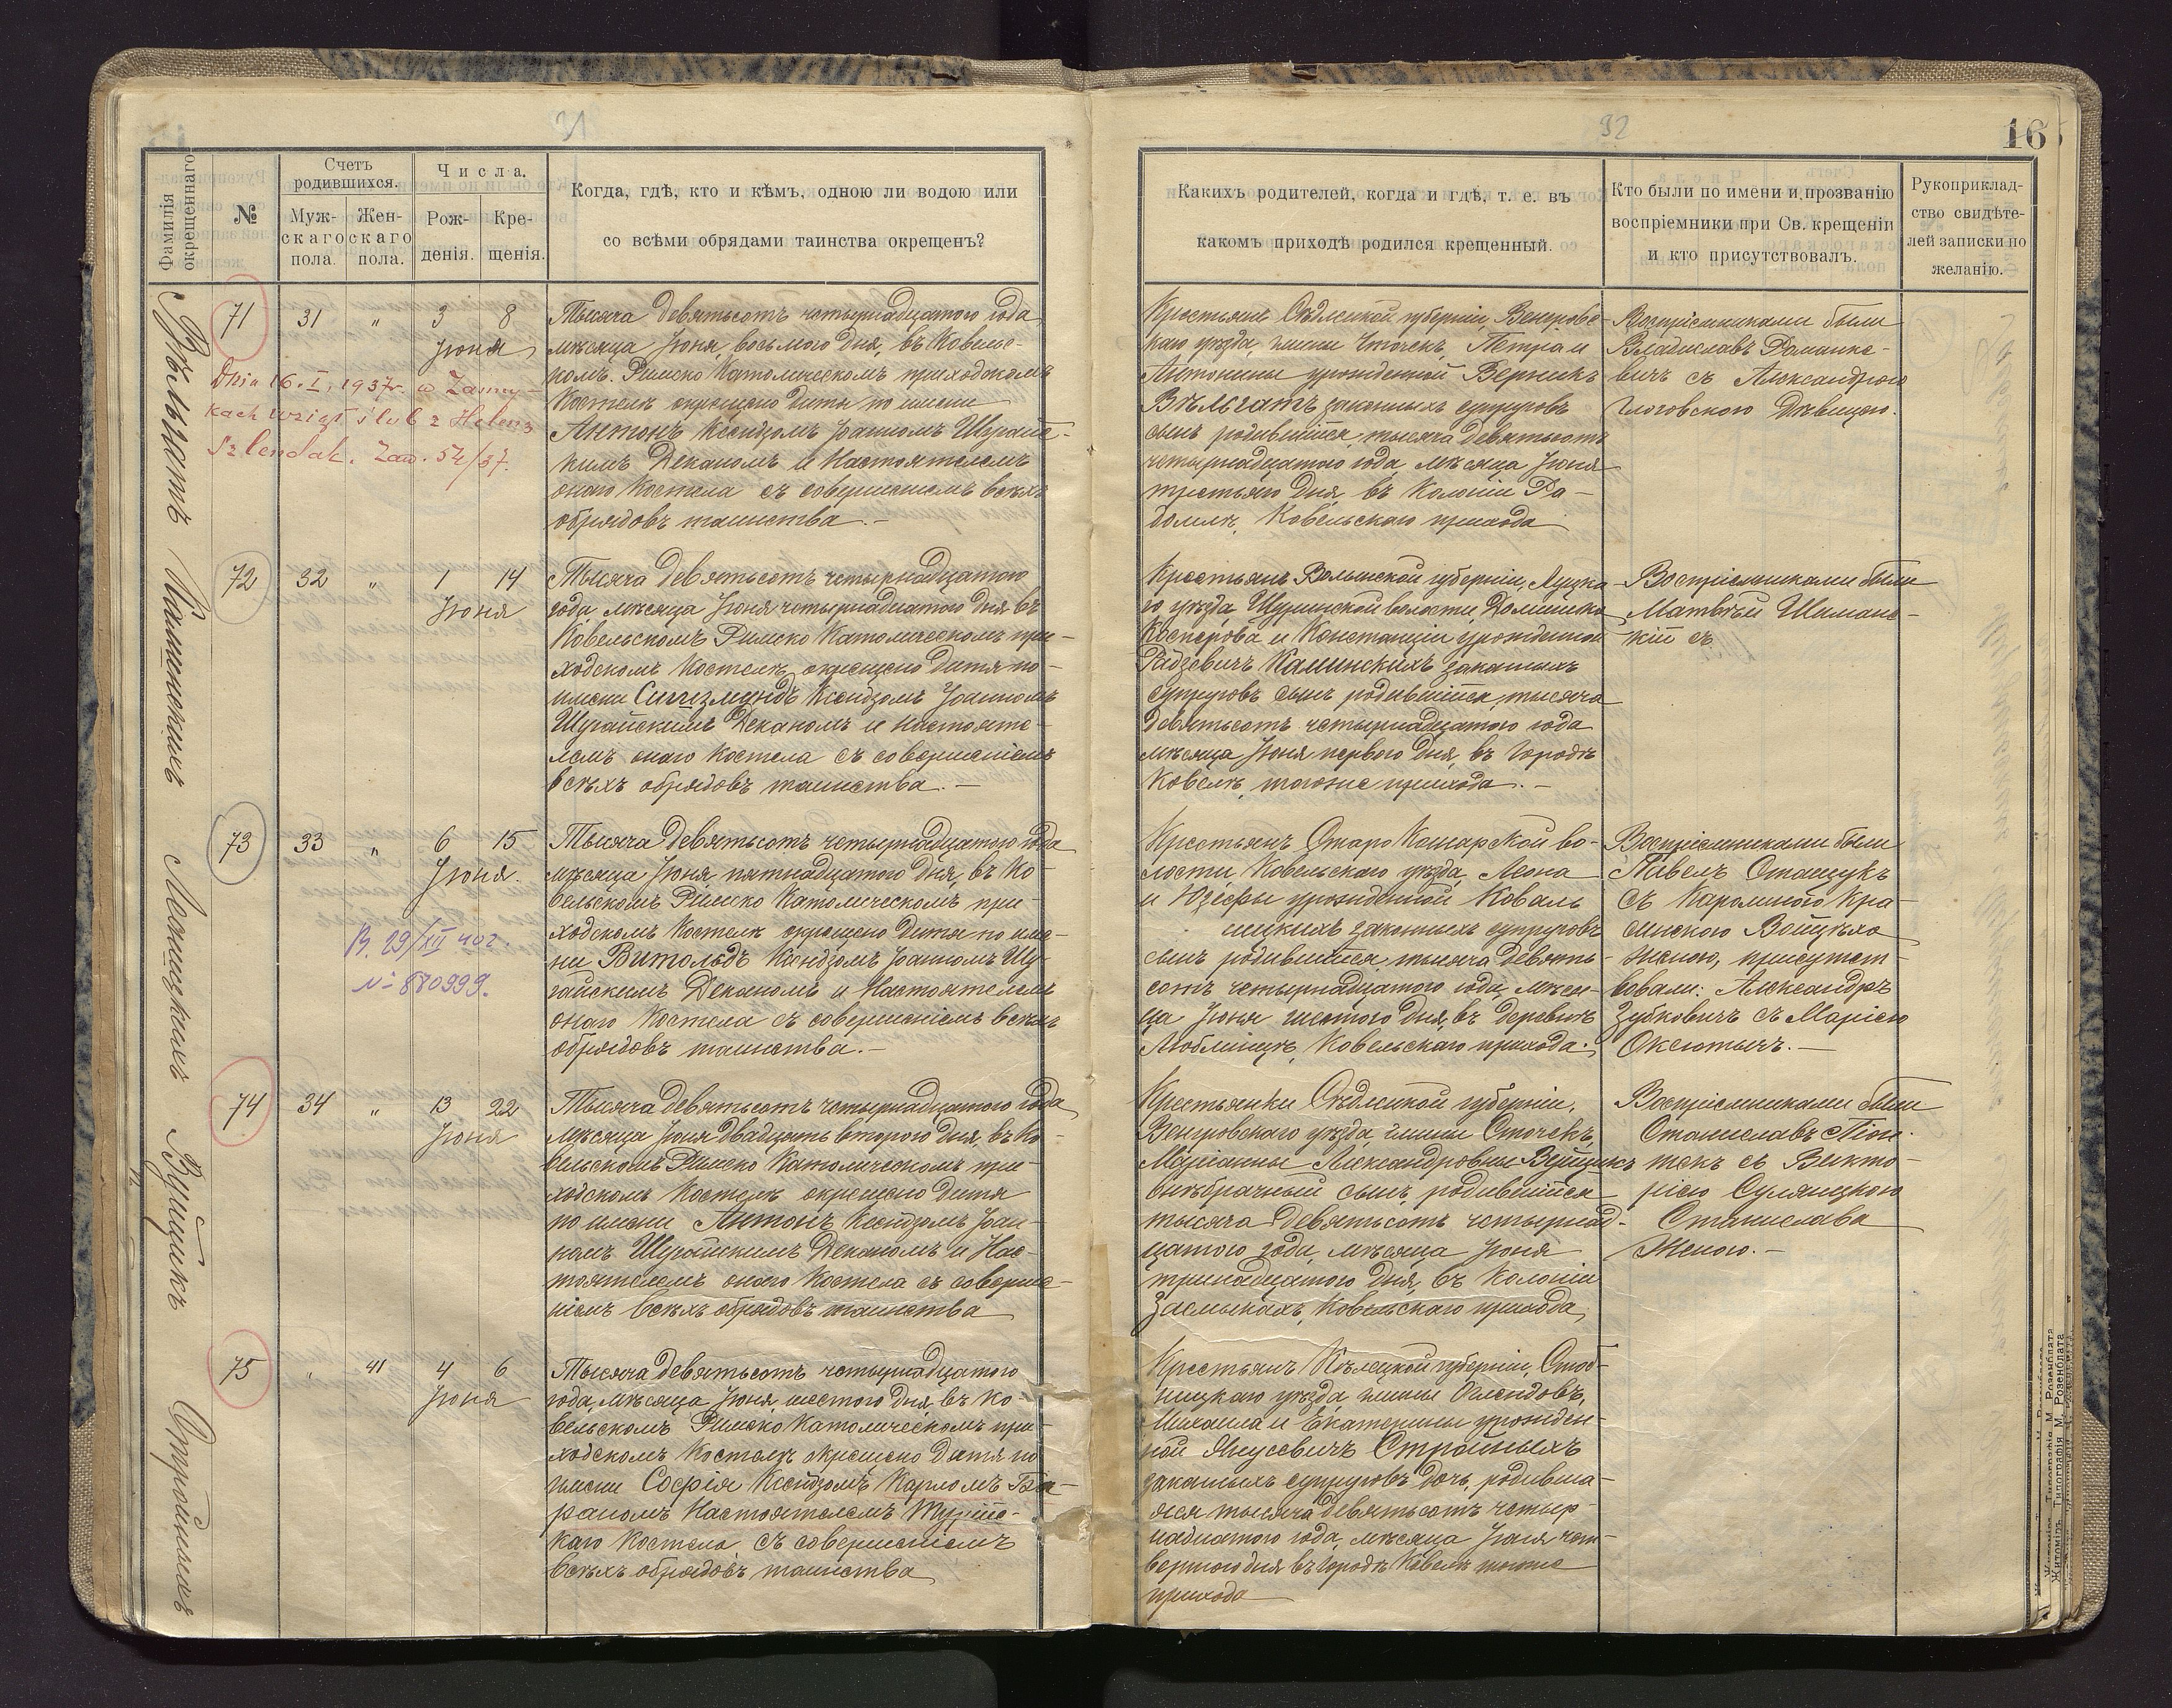 31
Фамилія окрещеннаго
№
Счетъ родившихся.
Мужскаго пола.
Женскаго пола.
Числа.
Рожденія.
Крещенія.
Когда, гдѣ, кто и кѣмъ, одною ли водою или
со всѣми обрядами таинства окрещенъ?
71
31 " 3 8
Іюня
Dnia 16.I.1937r. w Zasmy-
kach wziął ślub z Heleną
Szlendak. Zaw. 54/37.
Тысяча девятьсотъ четырнадцатого года
мѣсяца Іюня восьмого дня, въ Ковельс-
комъ Римско Католическомъ приходскомъ
Костелѣ окрещено дитя по имени
Антонъ Ксендзомъ Іоанномъ
кимъ Деканомъ и Настоятелемъ
оного Костела съ совершеніемъ всѣхъ
обрядовъ таинства.-
72
32 " 1 14
Іюня
Каминскихъ
Тысяча девятьсотъ четырнадцатого
года мѣсяца Іюня четырнадцатого дня въ
Ковельскомъ Римско Католическомъ при-
ходскомъ Костелѣ окрещено дитя по
имени Сигизмундъ Ксендзомъ Іоанномъ
Деканомъ и настояте-
лемъ оного Костела съ совершеніемъ
всѣхъ обрядовъ таинства.-
73
33 " 6 15
Іюня.
В. 29/XII 402.
№ 880999.
Тысяча девятьсотъ четырнадцатого года
мѣсяца Іюня пятнадцатого дня, въ Ко-
вельскомъ Римско Католическомъ при-
ходскомъ Костелѣ окрещено дитя по име-
ни Витольдъ Ксендзомъ Іоанномъ
Деканомъ и Настоятелемъ
оного Костела съ совершеніемъ всѣхъ
обрядовъ таинства.-
74
34 " 13 22
Іюня
Тысяча девятьсотъ четырнадцатого года
мѣсяца Іюня двадцать второго дня, въ Ко-
вельскомъ Римско Католическомъ при-
ходскомъ Костелѣ окрещено дитя
по имени Антонъ Ксендзомъ Іоан-
номъ Деканомъ и Нас-
тоятелемъ оного Костела съ соверше-
ніемъ всѣхъ обрядовъ таинства
75
" 41 4 6
Іюня
Стройныхъ
Тысяча девятьсотъ четырнадцатого
года, мѣсяца Іюня шестого дня, въ Ко-
вельскомъ Римско Католическомъ при-
ходскомъ Костелѣ окрещено дитя по
имени Софія Ксендзомъ Карломъ Ба-
раномъ Настоятелемъ Турійс-
каго Костела, съ совершеніемъ
всѣхъ обрядовъ таинства
32
16
Какихъ родителей, когда и гдѣ, т. е. въ
какомъ приходѣ родился крещенный.
Кто были по имени и прозванію
воспріемники при Св. крещеніи
и кто присутствовалъ.
Рукоприклад-
ство свидѣте-
лей записки по
желанію.
Крестьянъ Сѣдлецкой губерніи, Венгровс-
каго уѣзда, гмины Сточекъ, Петра и
Антонины урожденной Верникъ
Вѣльгатъ законныхъ супруговъ
сынъ родившійся тысяча девятьсотъ
четырнадцатого года, мѣсяца Іюня
третьяго дня, въ Колоніи Ра-
домлѣ, Ковельскаго прихода
Воспріемниками были
Владиславъ Романке-
вичъ съ Александрою
Глоговскою Дѣвицею.
Крестьянъ Волынской губерніи, Луцка-
го уѣзда, Щуринской волости, Доминика
Касперова и Констанціи урожденной
Радзевичъ Каминскихъ законныхъ
супруговъ сынъ родившійся тысяча
девятьсотъ четырнадцатого года
мѣсяца Іюня первого дня, въ городѣ
Ковелѣ, тогоже прихода.-
Воспріемниками были
Матвѣй Шиманс-
кій съ
Крестьянъ Старо Кошарской во-
лости Ковельскаго уѣзда, Леона
и Юзефы урожденной Коваль
ницкихъ законныхъ супруговъ
сынъ родившійся тысяча девять-
сотъ четырнадцатого года, мѣся-
ца Іюня шестого дня, въ деревнѣ
Люблинцѣ, Ковельскаго прихода.
Воспріемниками были
Павелъ Сташукъ
съ Каролиною Кра-
синскою Войцѣха
женою, присутст-
вовали: Александръ
Зубковичъ съ Маріею
Оксютычъ.-
Крестьянки Сѣдлецкой губерніи,
Венгровскаго уѣзда гмины Сточекъ,
Маріанны Александровны Вуйцикъ
внѣбрачный сынъ, родившійся
тысяча девятьсотъ четырнад-
цатого года, мѣсяца Іюня
тринадцатого дня, въ Колоніи
Засмыкахъ, Ковельскаго прихода
Воспріемниками были
Станиславъ Піон-
текъ съ Викто-
ріею Сулянцкою
Станислава
Женою.-
Крестьянъ Кѣлецкой губерніи, Стоб-
ницкаго уѣзда, гмины Оглендовъ,
Михаила и Екатерины урожден-
ной Янусевичъ Стройныхъ
законныхъ супруговъ дочь, родивша-
яся тысяча девятьсотъ четыр-
надцатого года, мѣсяца Іюня чет-
вертого дня въ городѣ Ковелѣ тогоже
прихода
Житомiръ Типографія М. Розенблата